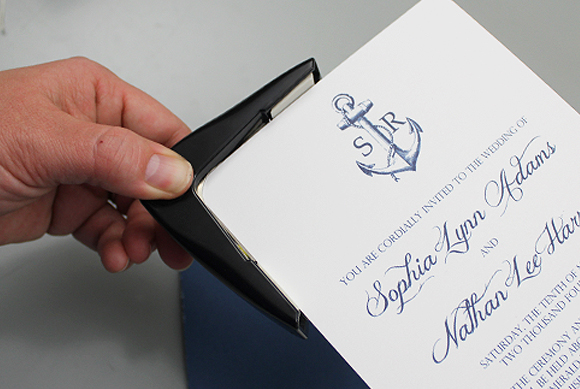 S R
YOU ARE CORDIALLY INVITED TO THE WEDDING OF
Sophia Lynn Adams
AND
Nathan Lee
SATURDAY, THE TENTH OF
TWO THOUSAND
CEREMONY AN
HELD ABO